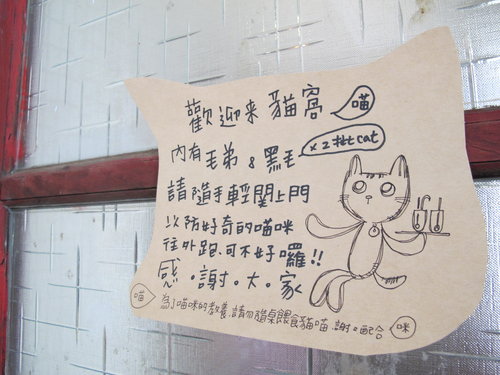 歡迎来貓窩 喵
內有毛弟&黑毛 x2批cat
請隨手輕關上門
以防好奇的喵咪
往外跑.可不好囉!!
感。謝。大。家
喵 為了喵咪的教養.請勿隨桌餵食貓喵.謝。配合 咪